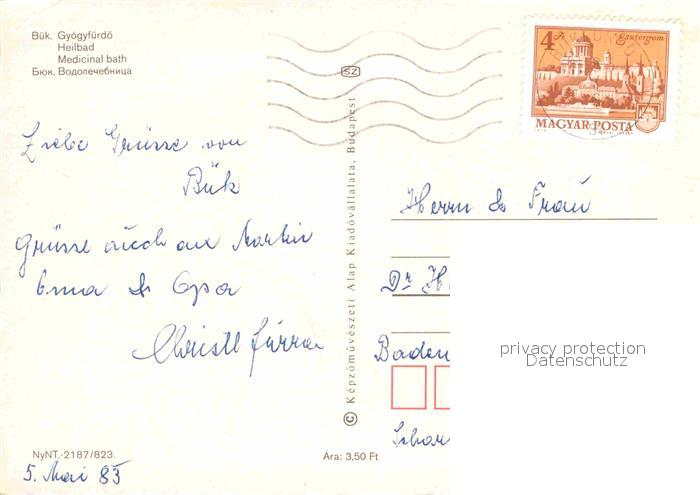 Bük. Gyógyfürdő
Heilbad
Medicinal bath
Бюк. Водолечебница
SZ
4 Ft
Esztergom
MAGYAR POSTA
Liebe Grüsse von
Bük
Grüsse auch an Martin
Oma & Opa
Christl
© Képzőművészeti Alap Kiadóvállalata, Budapest
Herrn & Frau
Dr H
Baden
privacy protection
Datenschutz
NyNT.-2187/823.
Ára: 3,50 Ft
5. Mai 85